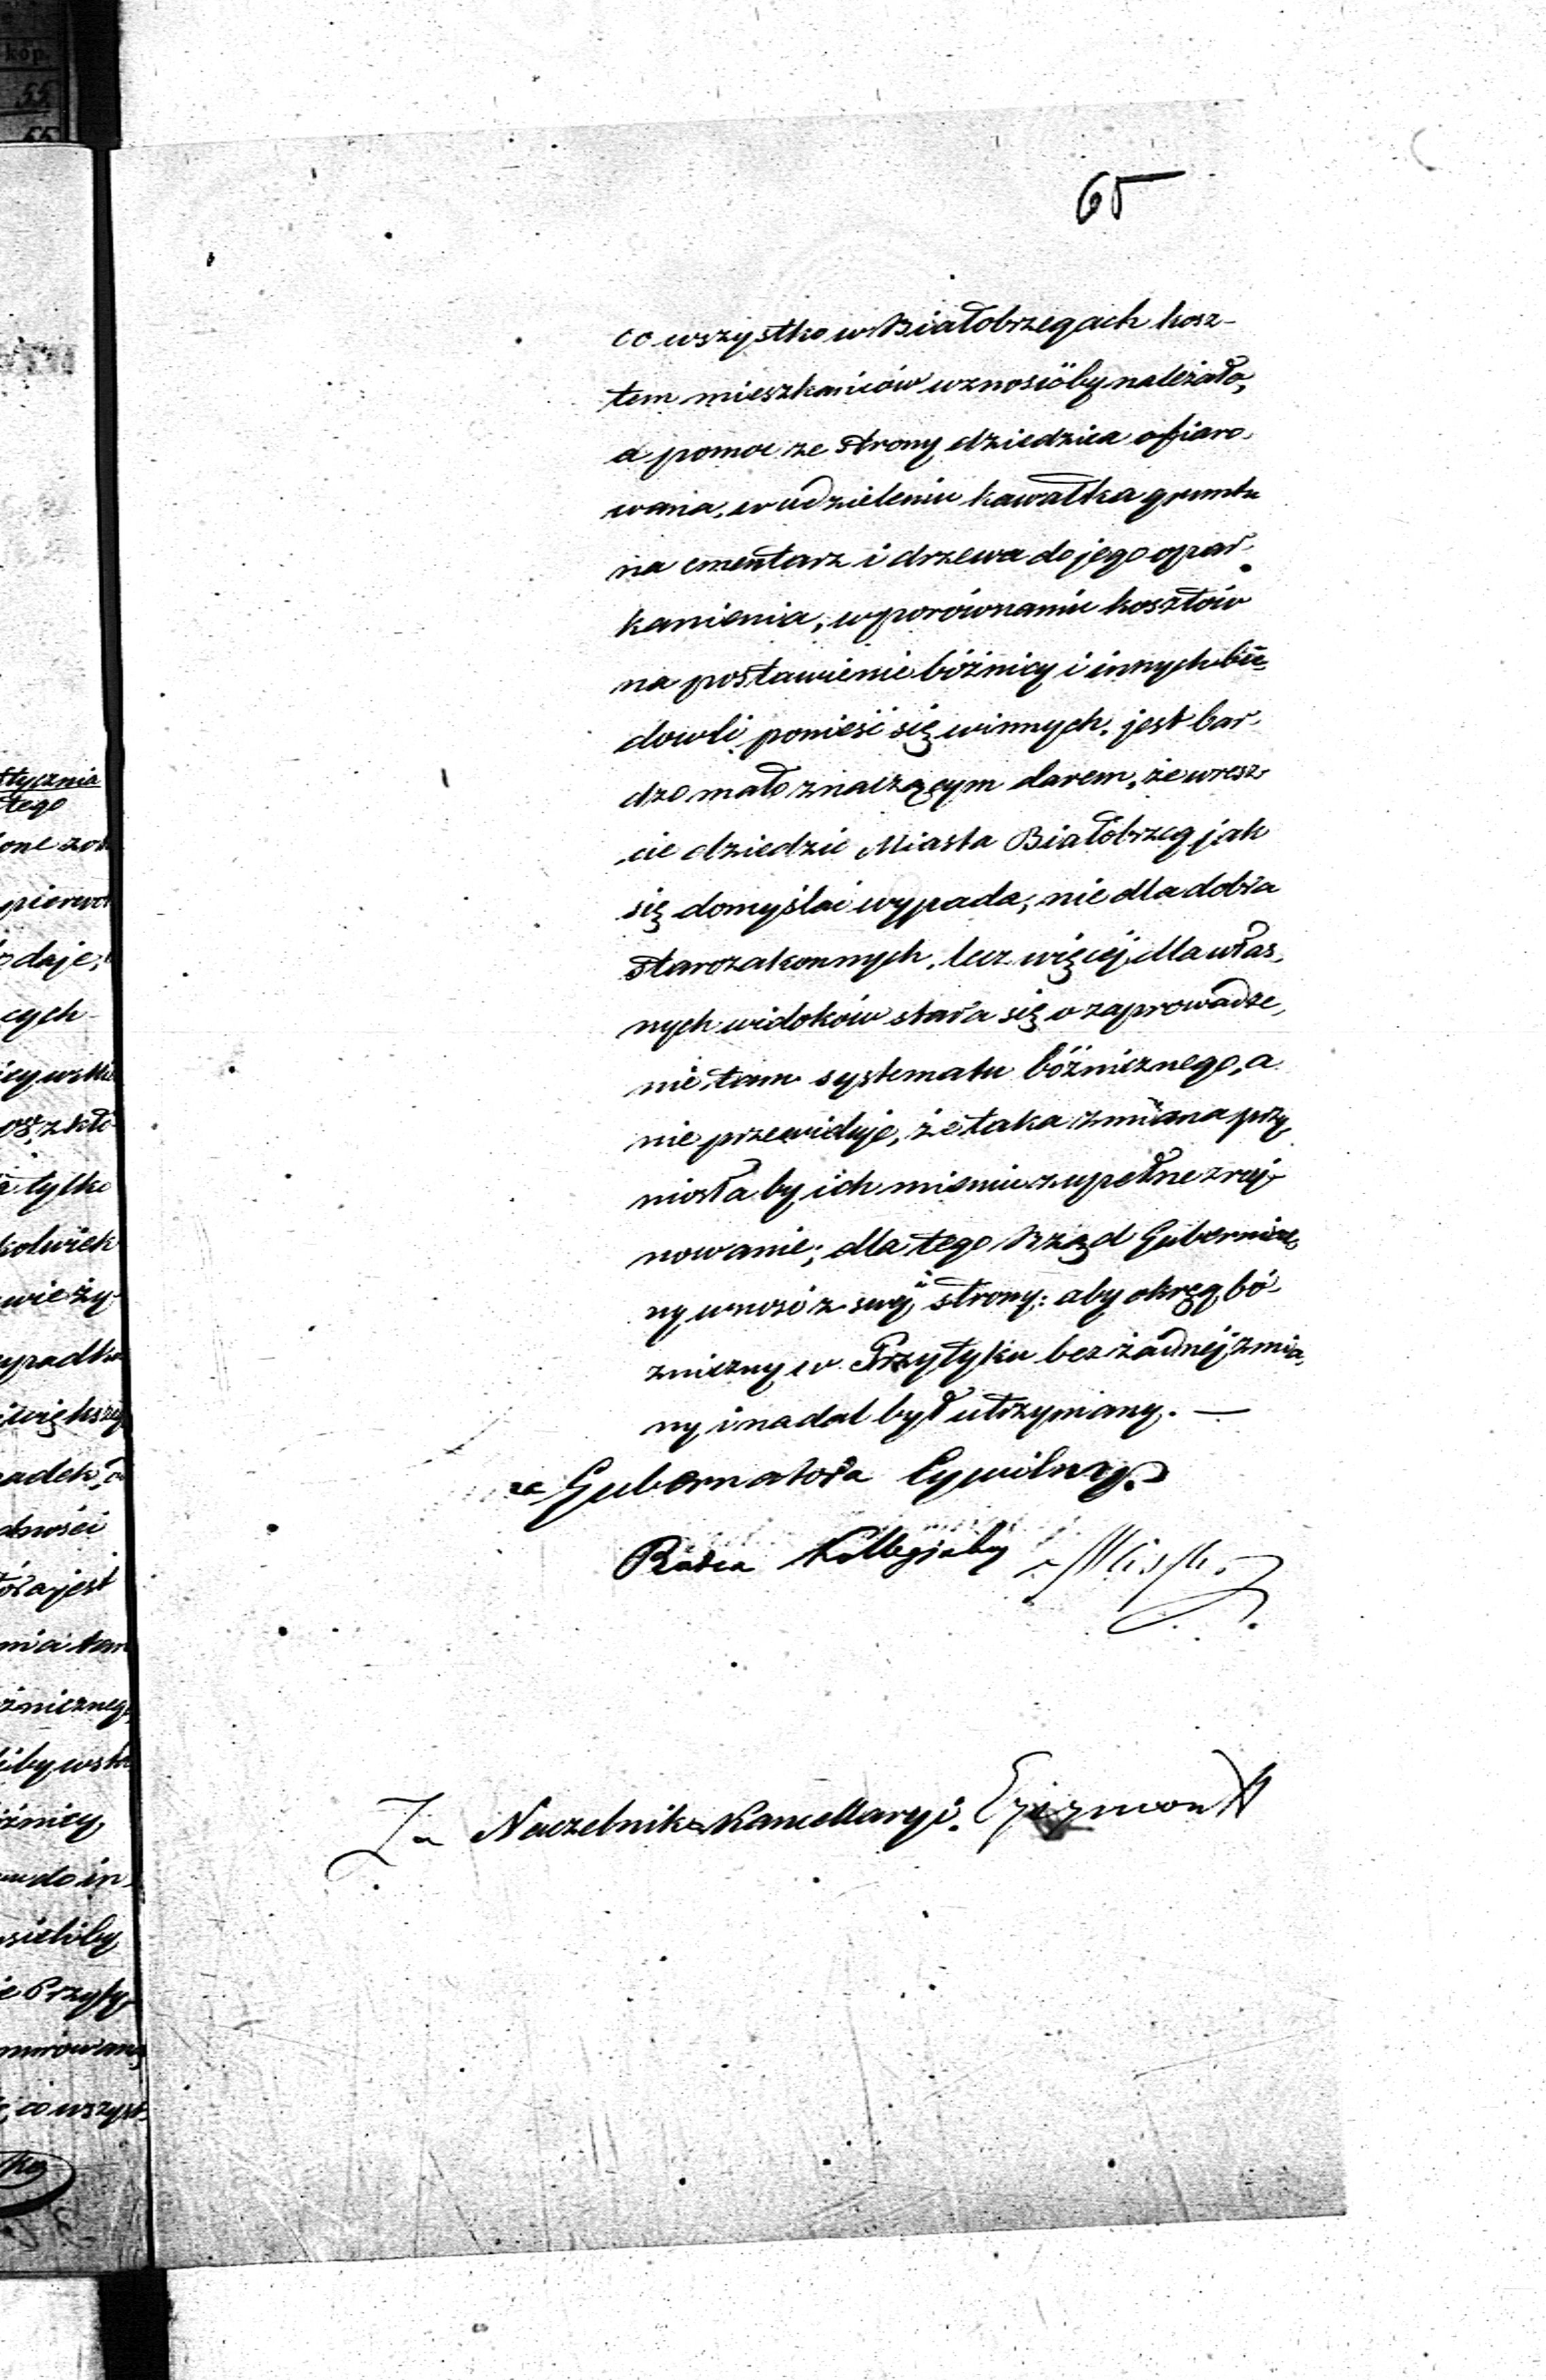 65
co wszystko w Białobrzegach kosz-
tem mieszkańców wznosićby należało,
a pomoc ze strony dziedzica ofiaro-
wana, w udzieleniu kawałka gruntu
na cmentarz i drzewa do jego opar-
kanienia, w porównaniu kosztów
na postawienie bóźnicy i innych bu-
dowli ponieść się winnych, jest bar-
dzo mało znaczącym darem, że wresz-
cie dziedzic Miasta Białobrzeg jak
się domyślać wypada, nie dla dobra
starozakonnych, lecz więcéj dla włas-
nych widoków stara się o zaprowadze-
nie tam systematu bóźnicznego, a
nie przewiduje, że taka zmiana przy-
niosłaby ich mieniu zupełne zruj-
nowanie; dla tego Rząd Gubernial-
ny wnosi z swéj strony: aby okręg bó-
źniczny w Przytyku bez żadnéj zmia-
ny i nadal był utrzymany. —
za Gubernatora Cywilnego
Radca Kollegjalny
Za Naczelnika Kancellaryi.
kop.
55
55
Stycznia
tego
one zos
pierwot
daje,
cych
tylko
kolwiek
większej
adek,
dności
óra jest
nia tam
źnicznego
óźnicy,
do in-
sieliby
Przyty-
murowaną
co wszyst-